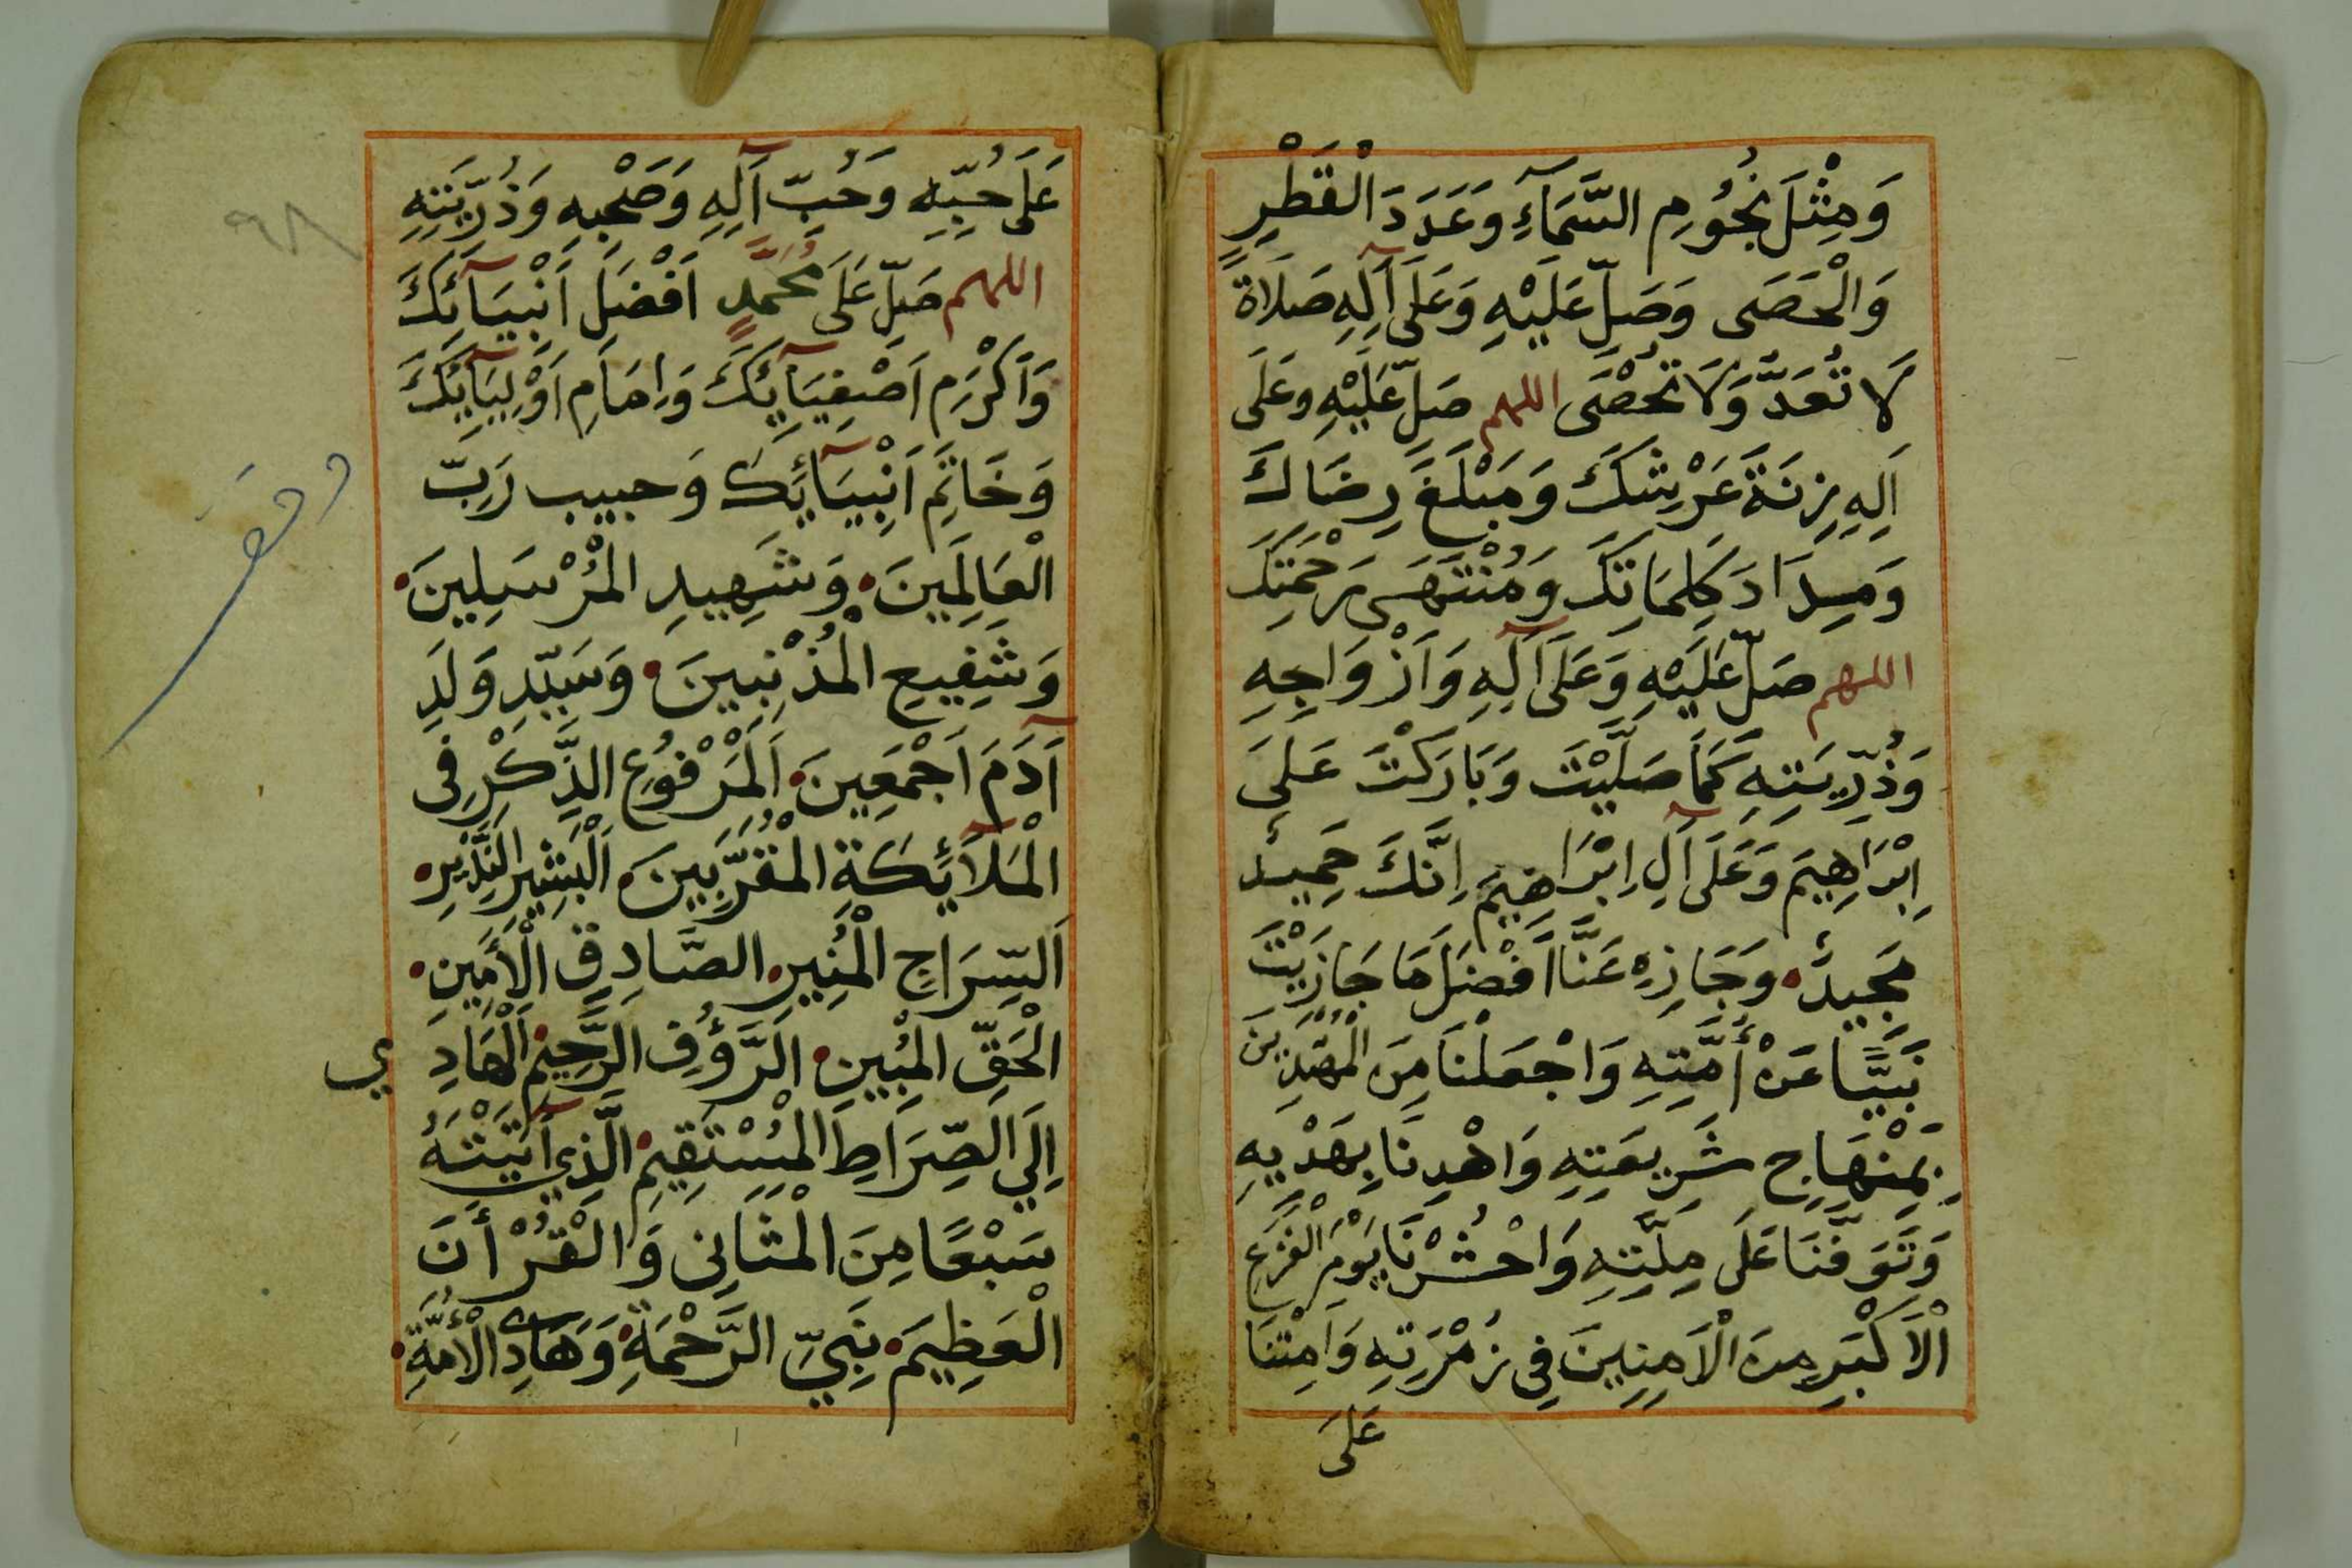 وَمِثْلَ نُجُومِ السَّمَآءِ وَعَدَدَ الْقَطْرِ
وَالْحَصَى وَصَلِّ عَلَيْهِ وَعَلَى آلِهِ صَلَاةً
لَا تُعَدُّ وَلَا تُحْصَى اللهم صَلِّ عَلَيْهِ وعَلَى
اَلِهِ زِنَةَ عَرْشِكَ وَمَبْلَغَ رِضَاكَ
وَمِدَادَ كَلِمَاتِكَ وَمُنْتَهَى رَحْمَتِكَ
اللهم صَلِّ عَلَيْهِ وَعَلَى آلِهِ وَاَزْوَاجِهِ
وَذُرِّيَتِهِ كَمَا صَلَّيْتَ وَبَارَكْتَ عَلَى
اِبْرَاهِيمَ وَعَلَى آلِ اِبْرَاهِيمَ اِنَّكَ حَمِيدٌ
مَجِيدٌ وَجَازِهِ عَنَّا اَفْضَلَ مَا جَازَيْتَ
نَبِيًّا عَنْ أُمَّتِهِ وَاجْعَلْنَا مِنَ الْمُهْتَدِينَ
بِمِنْهَاجِ شَرِيعَتِهِ وَاهْدِنَا بِهَدْيِهِ
وَتَوَفَّنَا عَلَى مِلَّتِهِ وَاحْشُرْنَا يَوْمَ الْفَزَعِ
الْاَكْبَرِ مِنَ الْاَمِنِينَ فِي زُمْرَتِهِ وَاَمِتْنَا
عَلَى
عَلَى حُبِّهِ وَحُبِّ آلِهِ وَصَحْبِهِ وَذُرِّيَتِهِ
اللهم صَلِّ عَلَى مُحَمَّدٍ اَفْضَلِ اَنْبِيَآئِكَ
وَاَكْرَمِ اَصْفِيَآئِكَ وَاِمَامِ اَوْلِيَآئِكَ
وَخَاتِمِ اَنْبِيَآئِكَ وَحبيب رَبِّ
الْعَالَمِينَ وَشَهِيدِ الْمُرْسَلِينَ
وَشَفِيعِ الْمُذْنِبِينَ وَسَيِّدِ وَلَدِ
آدَمَ اَجْمَعِينَ اَلْمَرْفُوعِ الذِّكْرِ فِى
الْمَلَآئِكَةِ الْمُقَرَّبِينَ اَلْبَشِيرِ النَّذِيرِ
اَلسِّرَاجِ الْمُنِيرِ الصَّادِقِ الْأَمِينِ
الْحَقِّ الْمُبِينِ الرَّؤُفِ الرَّحِيمِ الْهَادِي
اِلَي الصِّرَاطِ الْمُسْتَقِيمِ الَّذِي آتَيْتَهُ
سَبْعًا مِنَ الْمَثَانِى وَالْقُرْأنَ
الْعَظِيمَ نَبِيِّ الرَّحْمَةِ وَهَادِى الْأُمَّةِ
٩٨
وقف